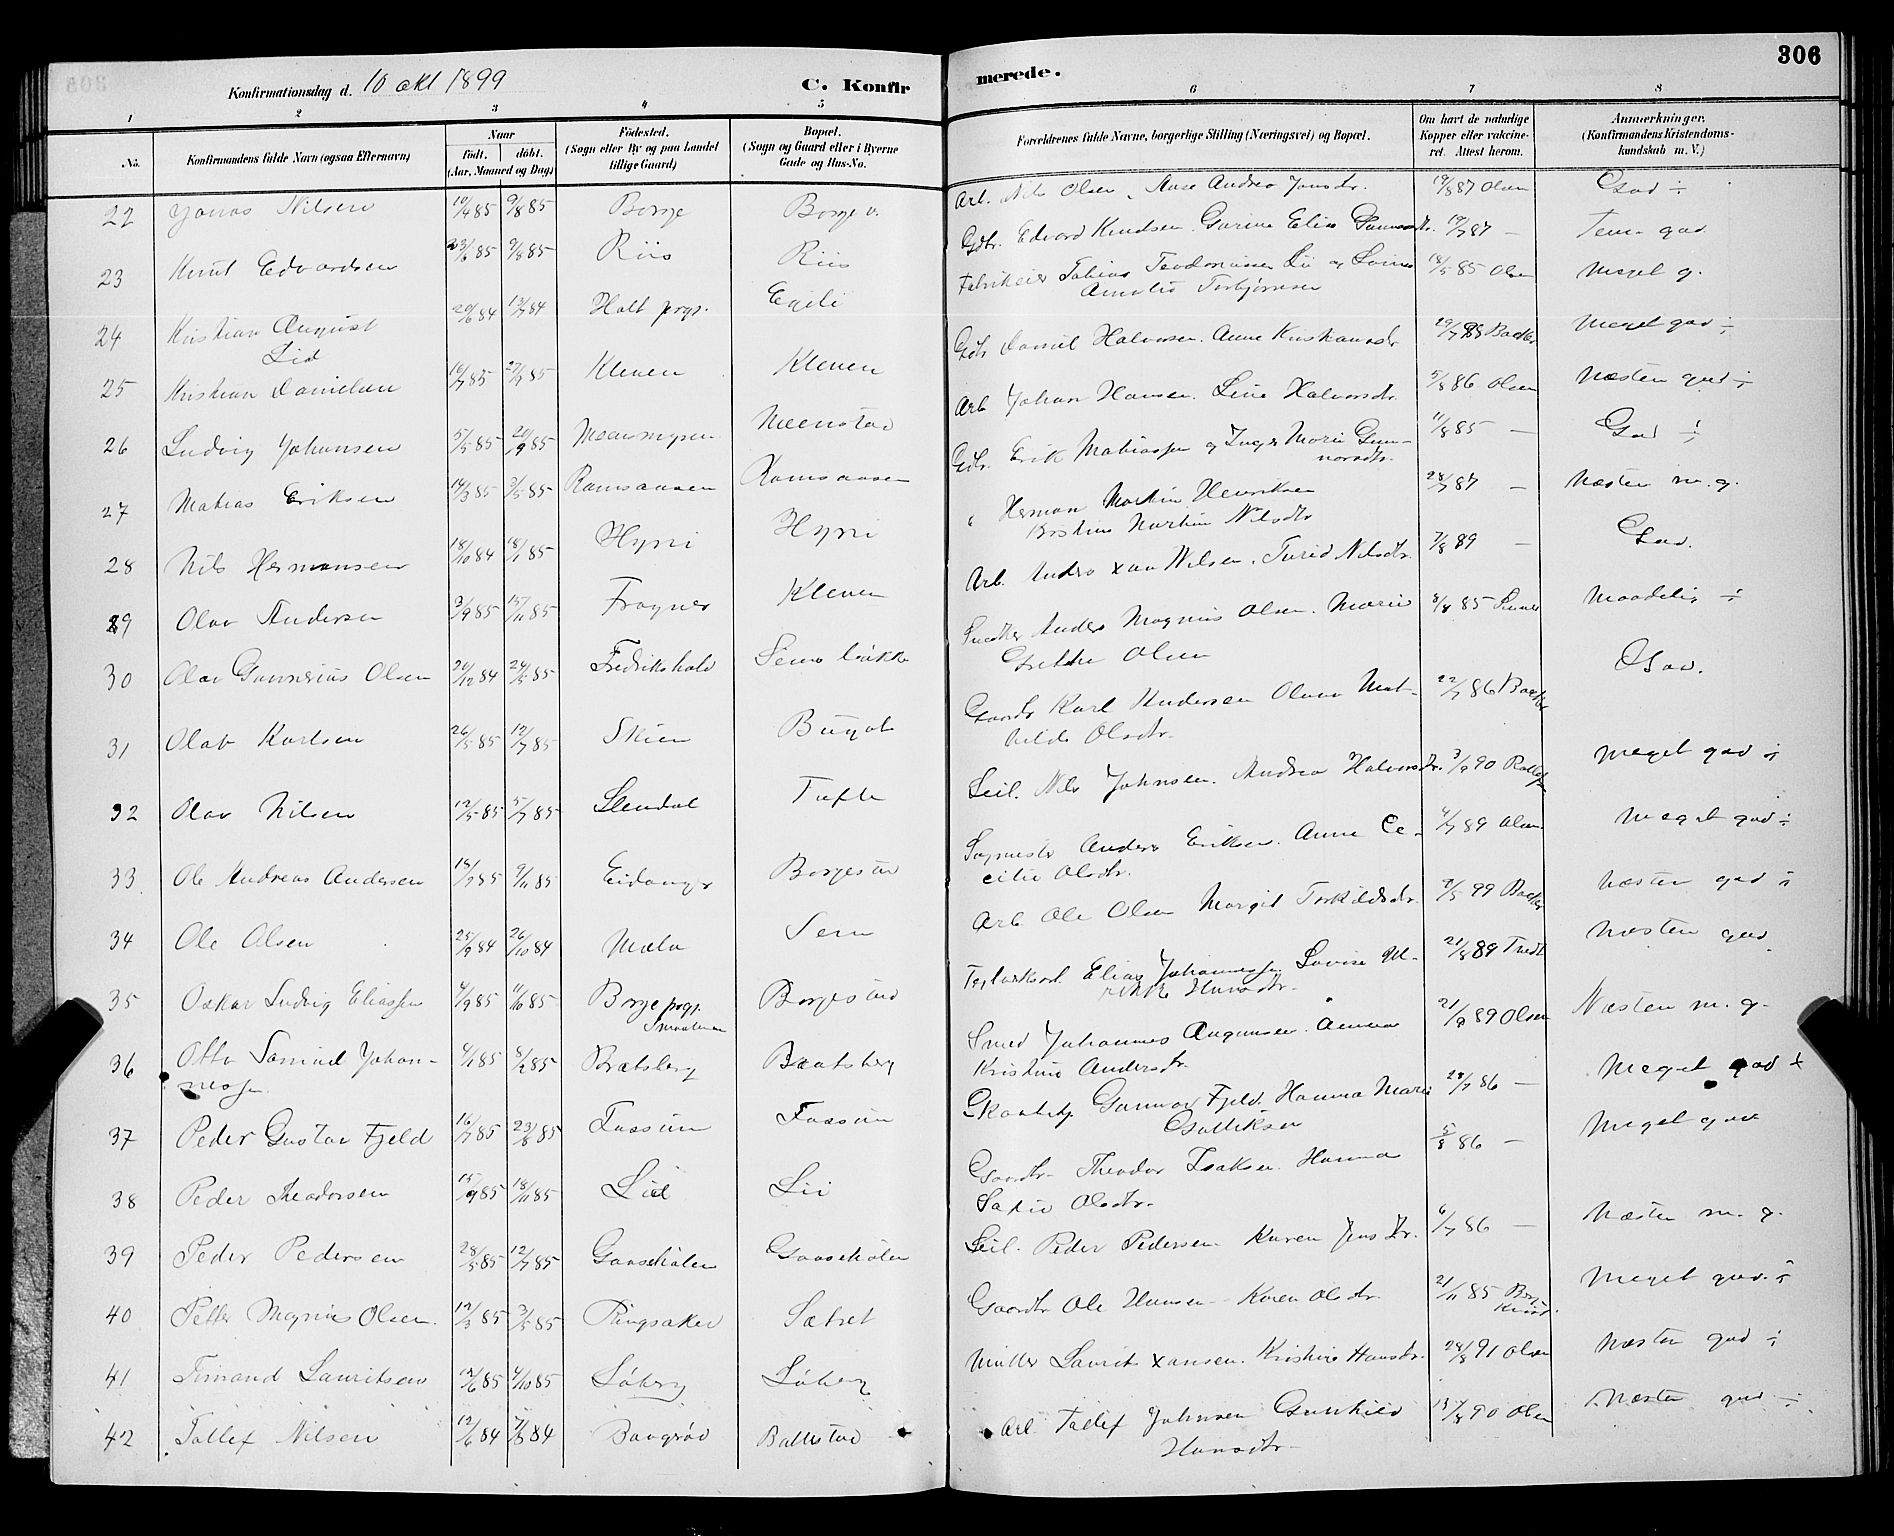 306
Konfirmationsdag d. 10 okt 1899
C. Konfirmerede.
1 2 3 4 5 6 7 8
No.
Konfirmandens fulde Navn (ogsaa Efternavn)
Naar
födt. döbt.
(Aar, Maaned og Dag)
Födested.
(Sogn eller By og paa Landet
tillige Gaard)
Bopæl.
(Sogn og Gaard eller i Byerne
Gade og Hus-No.
Forældrenes fulde Navne, borgerlige Stilling (Næringsvei) og Bopæl.
Om havt de naturlige
Kopper eller vaccine-
ret. Attest herom.
Anmærkninger.
(Konfirmandens Kristendoms-
kundskab m. V.)
22 Jonas Nilsen 10/4 85 9/8 85 Borge Borge v. Arb. Nils Olsen, Aase Andrea Jonsdr. 19/8 87 Olsen God ÷
23 Knut Edvardsen 23/6 85 9/8 85 Riis Riis Gdbr. Edvard Knudsen. Gurine Elise 19/7 87 — Tem. god
24 Kristian August 20/6 84 13/7 84 Holt prgj. Egeli Tobias Lii og
Lid Amalie Torbjørnsen 18/5 85 Olsen Meget g.
25 Kristian Danielsen 16/7 85 27/9 85 Kleven Kleven Gdbr Daniel Halvorsen. Anne Kristiansdr Backer Meget god ÷
26 Ludvig Johansen 5/5 85 20/9 85 Meensmyren Meenstad Arb Johan Hansen. Line Halvorsdr. 5/8 86 Olsen Næsten god ÷
27 Matias Eriksen 14/3 85 3/5 85 Ramsaasen Ramsaasen Gdbr. Erik Matiassen og Inger Marie Gun-
norsdtr. 11/8 85 — God ÷
28 Nils Hermansen 18/10 84 18/1 85 Hyni Hyni " Herman Martin Henriksen
Kristine Martine Nilsdtr 28/7 87 — Næsten m. g.
29 Olav Andersen 3/9 85 15/11 85 Frogner Kleven Arb. Anders Nilsen. Turid Nilsdtr. 7/8 89 — God.
30 Olav Gunnerius Olsen 20/12 84 24/5 85 Fredrikshald Anders Magnus Olsen. Marie
Grethe Olsen 8/8 85 Maadelig ÷
31 Olav Karlsen 26/5 85 12/7 85 Skien Gaardbr Karl Andersen Olava Mat-
hilde Olsdtr. 22/7 86 Backer God.
32 Olav Nilsen 12/5 85 5/7 85 Slemdal Tufte Seil. Nils Johnsen. Andrea Halvorsdtr. 3/9 90 Meget god ÷
33. Ole Andreas Andersen 18/7 85 9/11 85 Eidanger Borgestad Sagmester Anders Eriksen. Anne Ce-
cilie Olsdtr. 4/7 89 Olsen Meget god ÷
34 Ole Olsen 25/9 84 26/10 84 Mæla Sem Arb. Ole Olsen Margit Torkildsdtr. 9/5 99 Backer Næsten god ÷
35 Oskar Ludvig Eliassen 4/9 85 11/10 85 Borge prgj.
Smaalenene Borgestad Elias Johannessen Lovise M-
Hansdtr. 21/8 89 Næsten god
36 Otto Samuel Johan-
nessen. 4/1 85 8/2 85 Bratsberg Bratsberg Smed Johannes Anna
Kristine Andersdtr. 21/9 89 Olsen Næsten m. g.
37 Peder Gustav Fjeld 16/7 85 23/8 85 Fossum Fossum Gunnar Fjeld. Hanna Marie
Gulliksen 28/7 86 — Meget god ÷
38 Peder Theodorsen 15/9 85 18/10 85 Lid Lii Gaardbr. Theodor Isaksen. Hanna
Sofie Olsdtr. 5/8 86 — Meget god
39 Peder Pedersen 28/5 85 12/7 85 Gaaseholen Gaaseholen Seil. Peder Pedersen Karen Jensdtr. 6/7 86 — Næsten m. g.
40 Petter Magnus Olsen. 12/3 85 3/5 85 Ringsaker Sætret Gaardbr Ole Hansen. Karen Olsdtr. 21/11 85 Meget god. ÷
41 Timand Lauritsen 12/6 85 4/10 85 Løberg Løberg Møller Laurits Hansen. Kristine Hansdtr. 24/8 91 Olsen Næsten god ÷
42 Tollef Nilsen 12/6 84 7/8 84 Baugrød Ballestad Arb. Tollef Johnsen Gunhild
Hansdtr. 13/8 90 Olsen Næsten god ÷